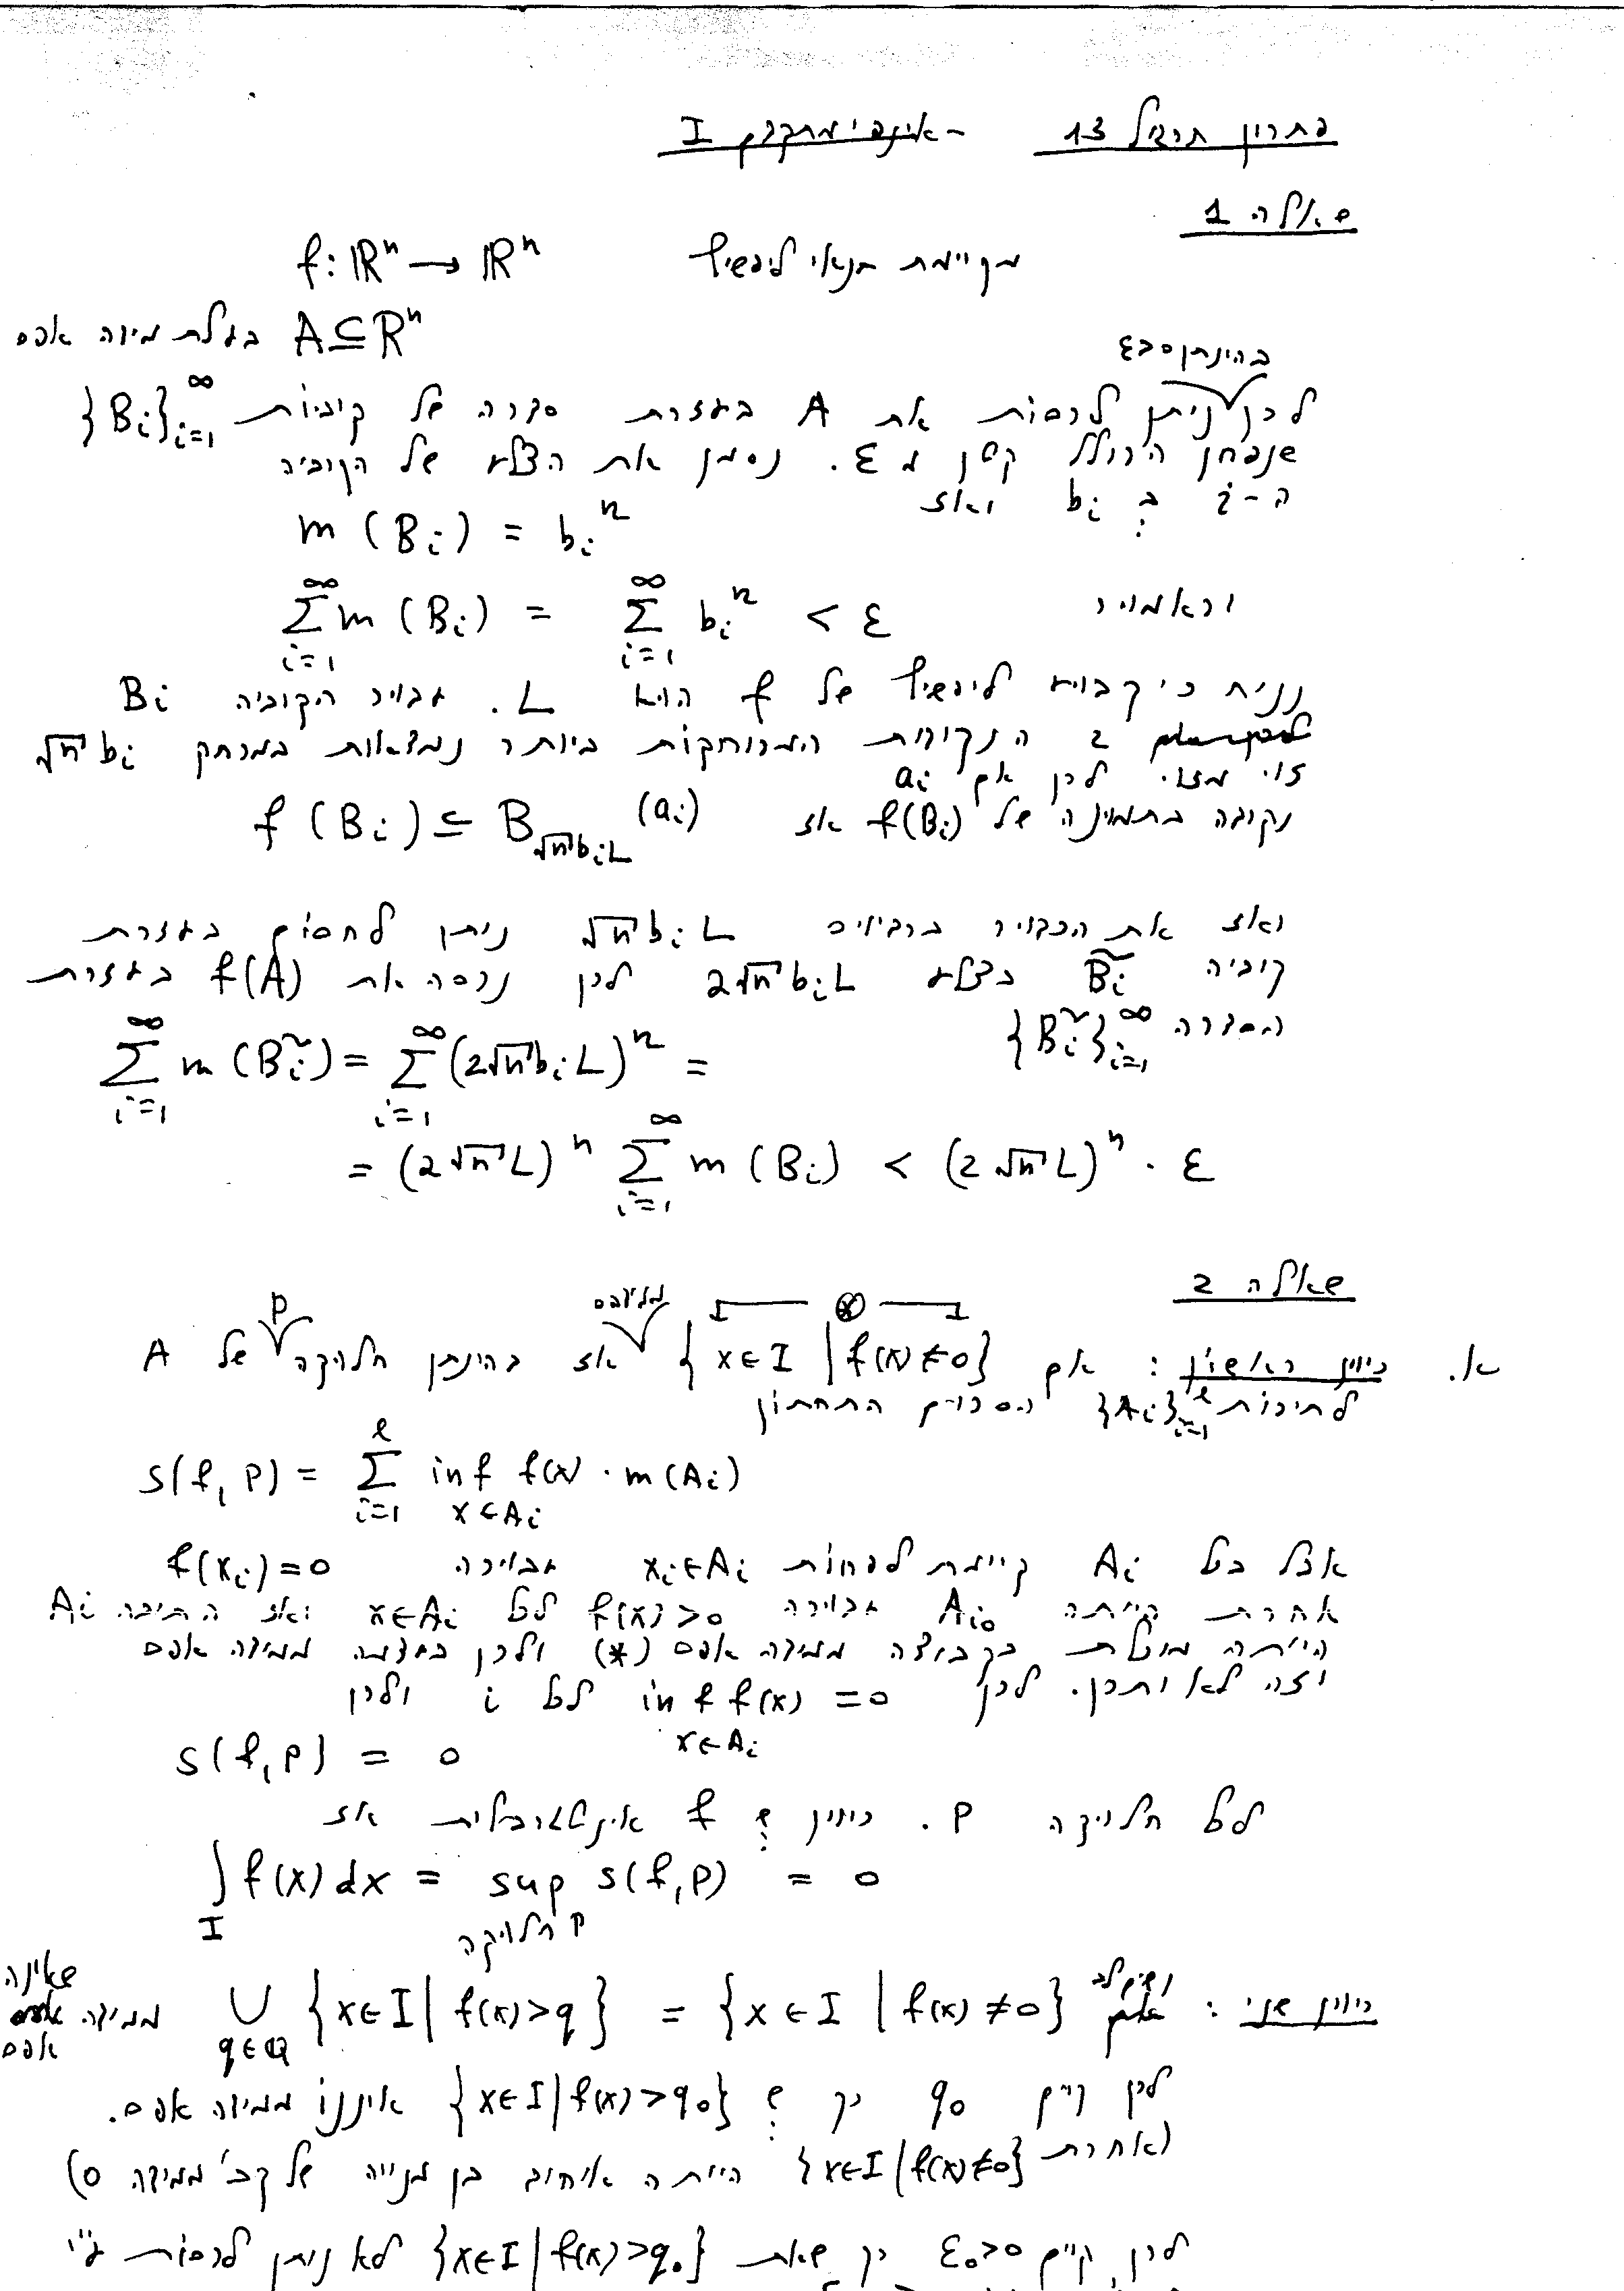 פתרון תרגיל 13 - אינפי מתקדם I
שאלה 1
f: ℝⁿ → ℝⁿ מקיימת תנאי ליפשיץ
A ⊆ ℝⁿ בעלת מידה אפס
בהינתן ε>0
לכן ניתן לכסות את A בעזרת סדרה של קוביות {B_i}_{i=1}^∞
שנפחן הכולל קטן מ ε. נסמן את הצלע של הקוביה
ה-i ב b_i ואז
m(B_i) = b_i^n
וכאמור Σ_{i=1}^∞ m(B_i) = Σ_{i=1}^∞ b_i^n < ε
נניח כי קבוע ליפשיץ של f הוא L. עבור הקוביה B_i
2 הנקודות המרוחקות ביותר נמצאות במרחק √n b_i
זו מזו. לכן אם a_i
נקודה בתמונה של f(B_i) אז f(B_i) ⊆ B_{√n b_i L}(a_i)
ואז את הכדור ברדיוס √n b_i L ניתן לחסום בעזרת
קוביה B̃_i בצלע 2√n b_i L לכן נכסה את f(A) בעזרת
הסדרה {B̃_i}_{i=1}^∞
Σ_{i=1}^∞ m(B̃_i) = Σ_{i=1}^∞ (2√n b_i L)^n =
= (2√n L)^n Σ_{i=1}^∞ m(B_i) < (2√n L)^n · ε
שאלה 2
א. כיוון ראשון: אם {x∈I | f(x)≠0} ממידה אפס אז בהינתן חלוקה P של A
לתיבות {A_i}_{i=1}^l הסכום התחתון
s(f,P) = Σ_{i=1}^l inf_{x∈A_i} f(x) · m(A_i)
אצל כל A_i קיימת לפחות x_i∈A_i עבורה f(x_i)=0
אחרת הייתה A_{i0} עבורה f(x)>0 לכל x∈A_i ואז התיבה A_i
הייתה מוכלת בקבוצה ממידה אפס (*) ולכן בעצמה ממידה אפס
וזה לא יתכן. לכן inf_{x∈A_i} f(x) = 0 לכל i ולכן
s(f,P) = 0
לכל חלוקה P. כיוון ש f אינטגרבילית אז
∫_I f(x)dx = sup_{P חלוקה} s(f,P) = 0
כיוון שני: נשים לב {x∈I | f(x)≠0} = ∪_{q∈ℚ} {x∈I | f(x)>q} שאינה ממידה אפס
לכן קיים q₀ כך ש {x∈I | f(x)>q₀} איננו ממידה אפס.
(אחרת {x∈I | f(x)≠0} הייתה איחוד בן מנייה של קב' ממידה 0)
לכן, קיים ε₀>0 כך שאת {x∈I | f(x)>q₀} לא ניתן לכסות ע"י